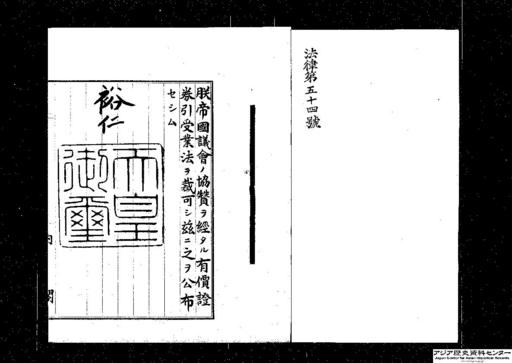 法律第五十四號
朕帝國議會ノ協贊ヲ經タル有價證
券引受業法ヲ裁可シ茲ニ之ヲ公布
セシム
裕仁
天皇
御璽
内閣
アジア歴史資料センター
Japan Center for Asian Historical Records